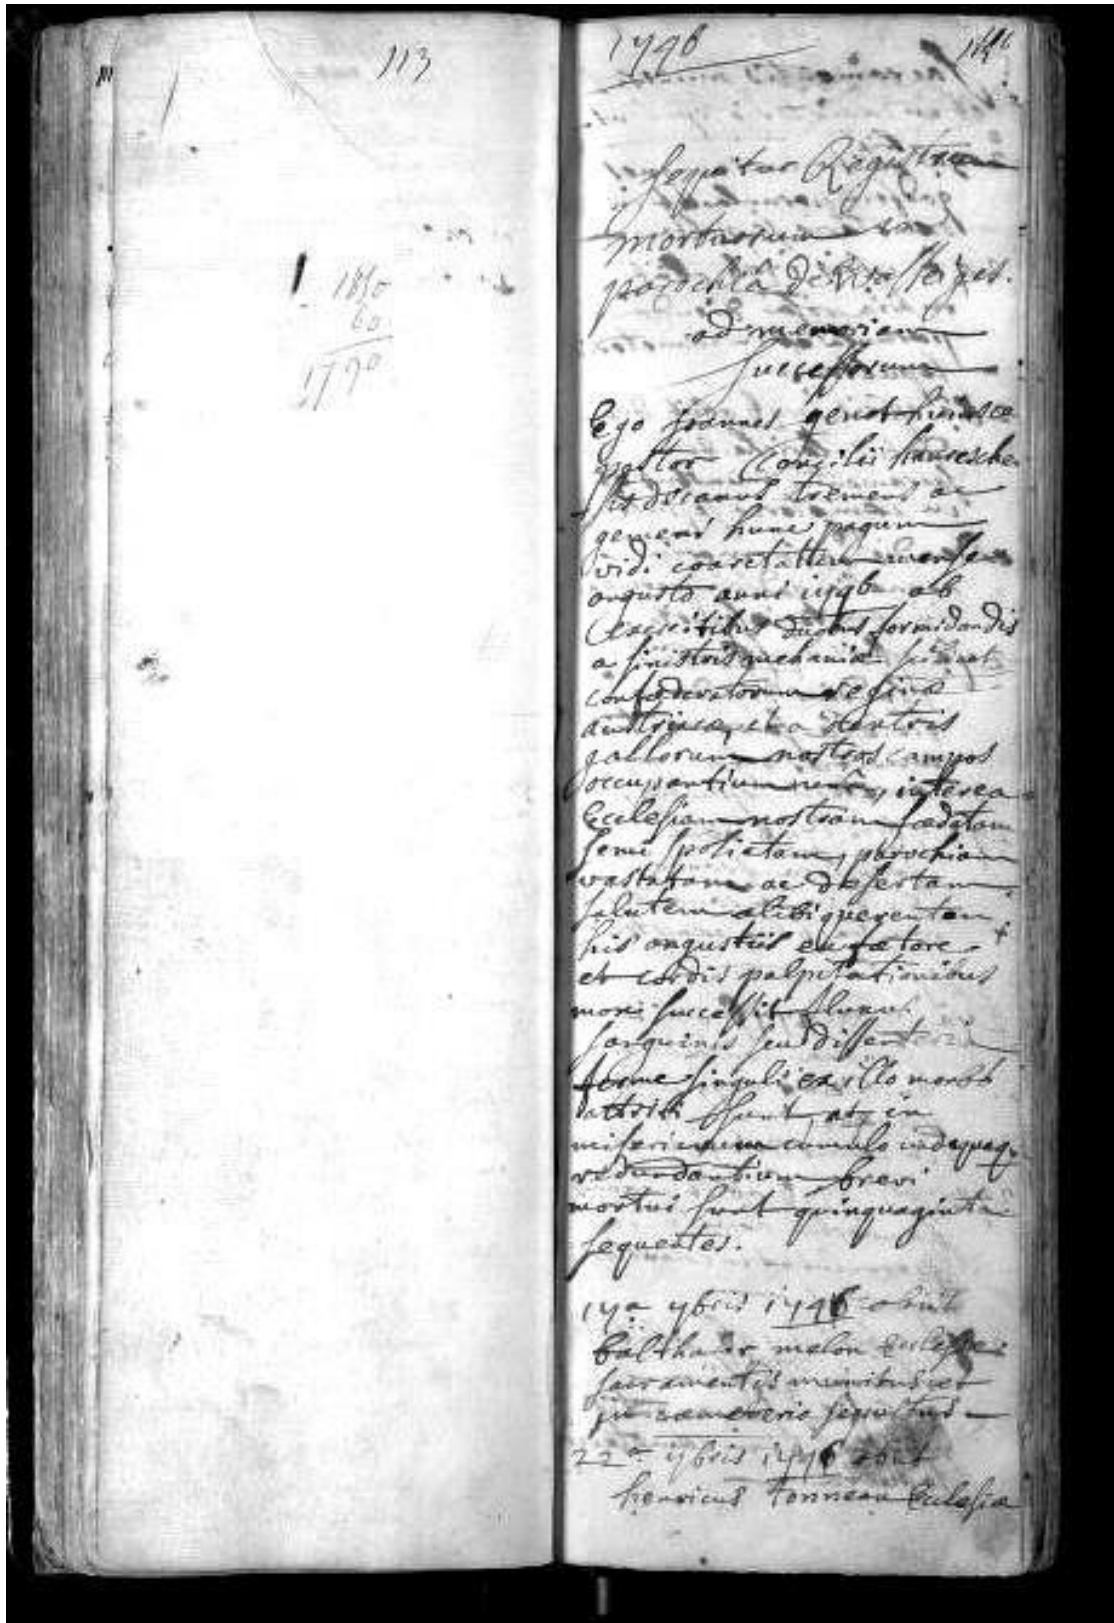 113
1850
60
1790
1746
114
Sequitur Registrum
mortuorum in
parochia de
ad memoriam
successorum
Ego Joannes genot huiusce
pastor Concilii
decanus tremens ac
gemens hunc pagum
vidi coarctatum mense
augusto anni 1746 ab
exercitibus duobus formidandis
a sinistris mehaniae scilicet
confoederatorum reginae
austriacae, et a dextris
gallorum nostros campos
occupantium, interea
Ecclesiam nostram foedatam
semi spoliatam, parochiam
vastatam ac desertam
salutem alibi querentem
his angustiis ex foetore
et cordis palpitationibus
mox successit fluxus
sanguinis seu dissenteria
ferme singuli ex illo morbo
attriti sunt atq in
miseriarum cumulo undequaq
redundantium brevi
mortui sunt quinquaginta
sequentes.
17a 7bris 1746 obiit
balthasar melon Ecclesiae
sacramentis munitus et
in coemeterio sepultus
22a 7bris 1746 obiit
henricus tonneau Ecclesiae